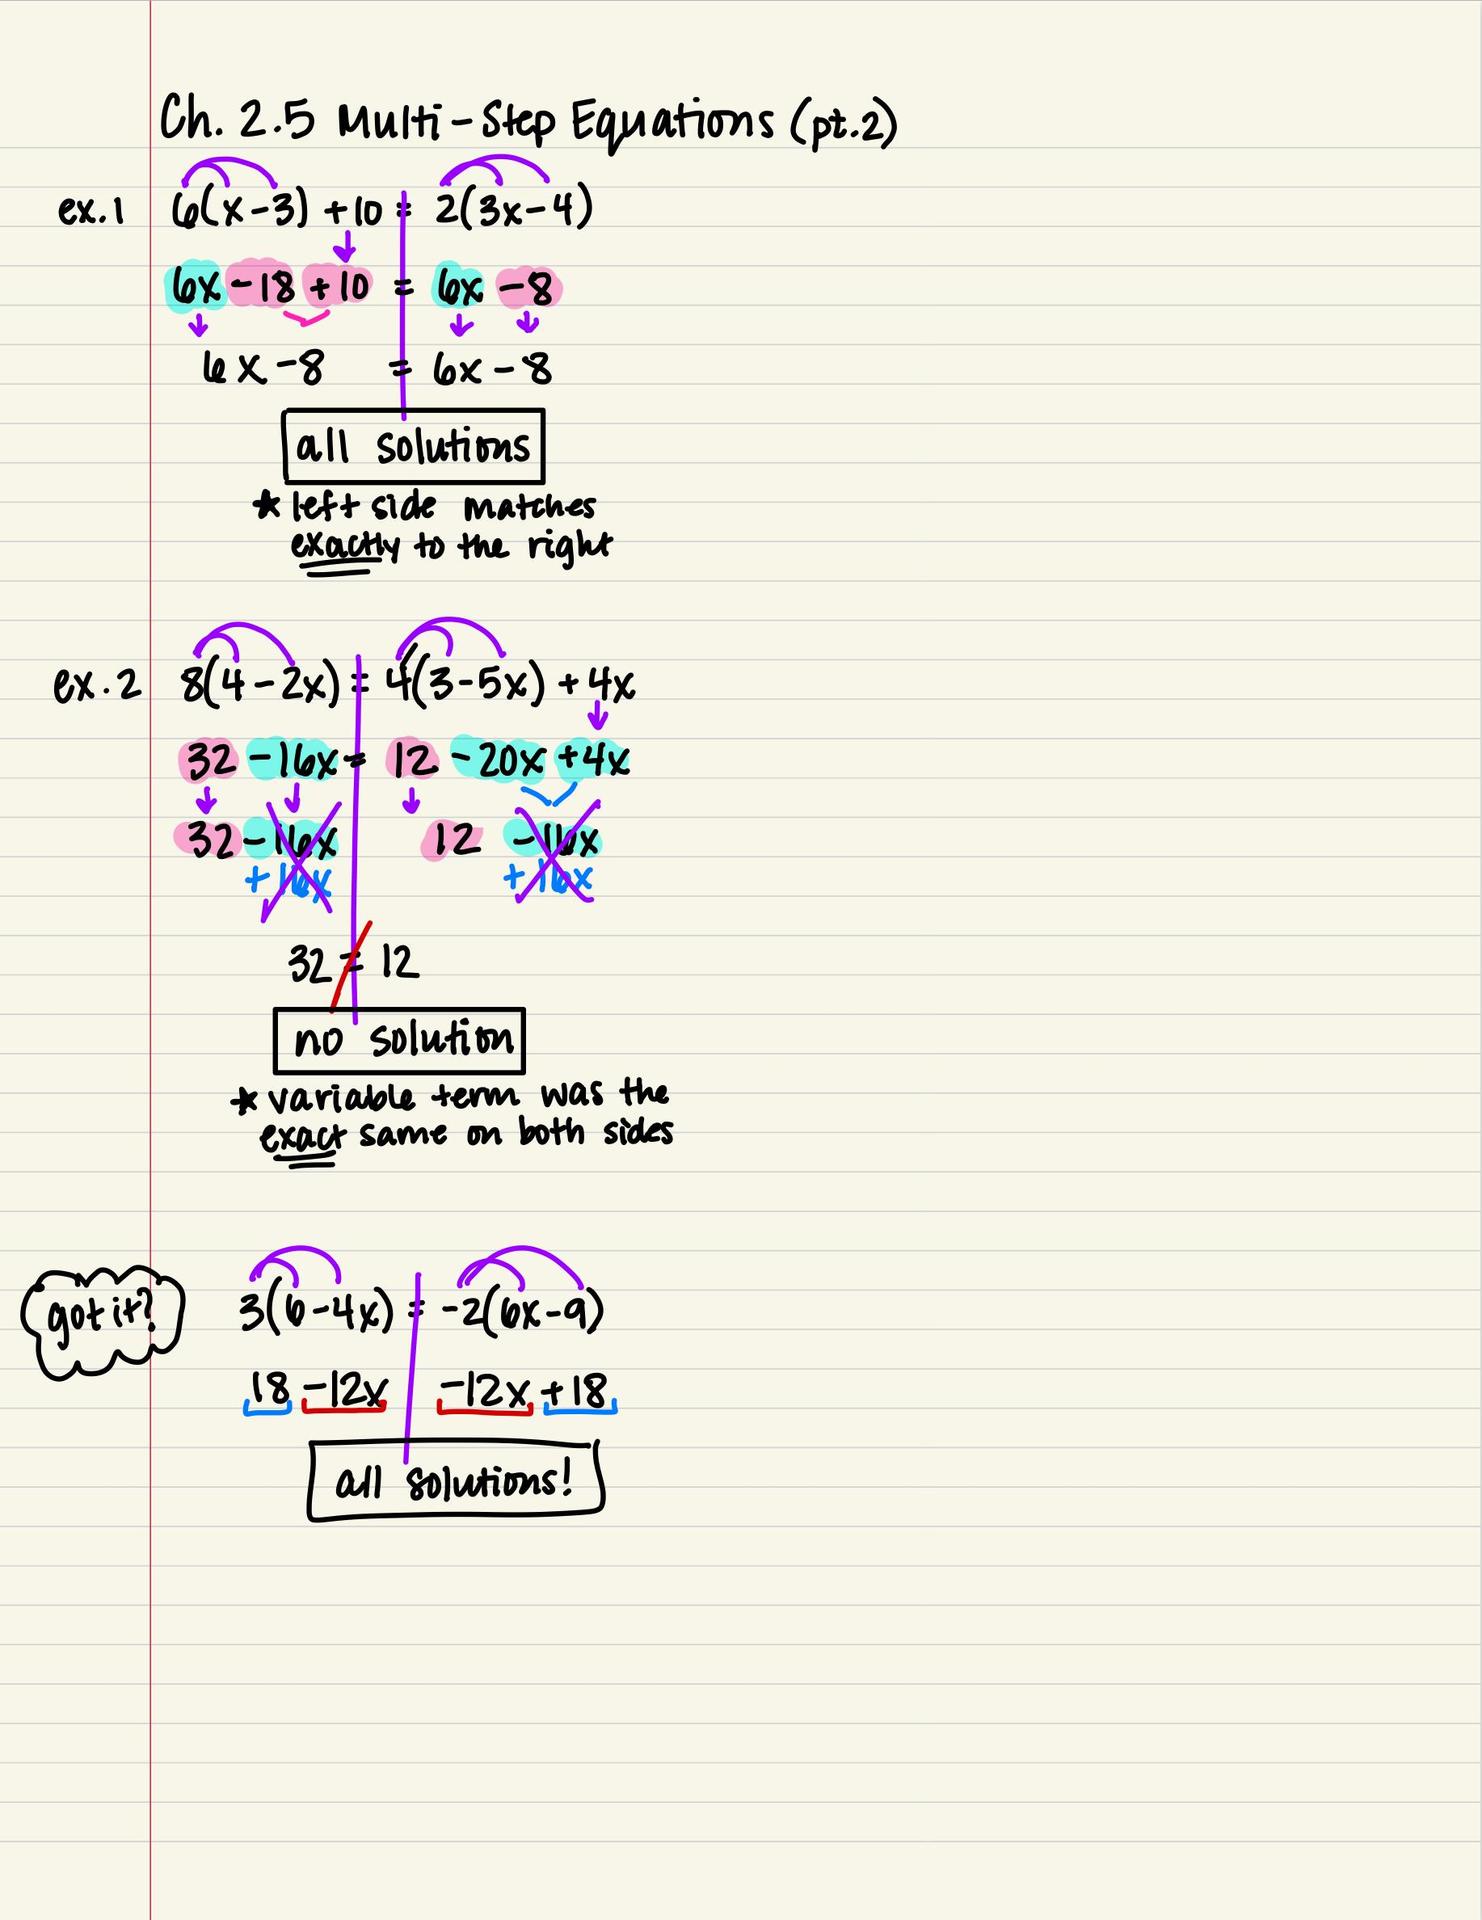 Ch. 2.5 Multi-Step Equations (pt.2)
ex.1 6(x-3) +10 = 2(3x-4)
6x -18 +10 = 6x -8
6x -8 = 6x -8
all solutions
* left side matches
exactly to the right
ex.2 8(4-2x) = 4(3-5x) +4x
32 -16x = 12 -20x +4x
32 -16x 12 -16x
+16x +16x
32 ≠ 12
no solution
* variable term was the
exact same on both sides
got it? 3(6-4x) = -2(6x-9)
18 -12x -12x +18
all solutions!